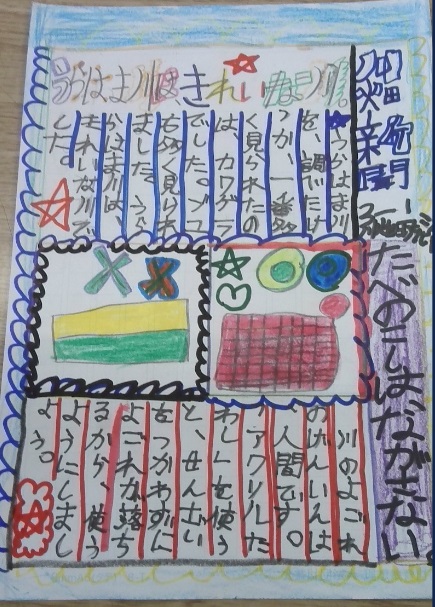 うらはま川は、きれいな川。
うらはま川
を、調べたけ
っか、一番多
く見られたの
は、カワゲラ
でした。
ました。うら
はま川は、
きれいな川で
した。
たべのこしはながさない。
川のよごれ
のげんいんは
人間です。
アクリルた
わしを使う
と、せんざい
をつかわずに
よごれが落ち
るから、使う
ようにしまし
ょう。